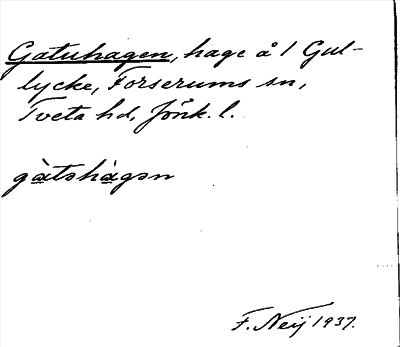 Gatuhagen, hage å 1 Gul-
lycke, Forserums sn,
Tveta hd, Jönk. l.
gàtəhàgən
F. Neij 1937.